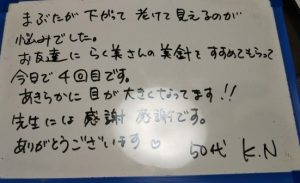 まぶたが下がって老けて見えるのが
悩みでした。
お友達にらく美さんの美針をすすめてもらって
今日で4回目です。
あきらかに目が大きくなってます!!
先生には感謝感謝です。
ありがとうございます♡
50代 K.N